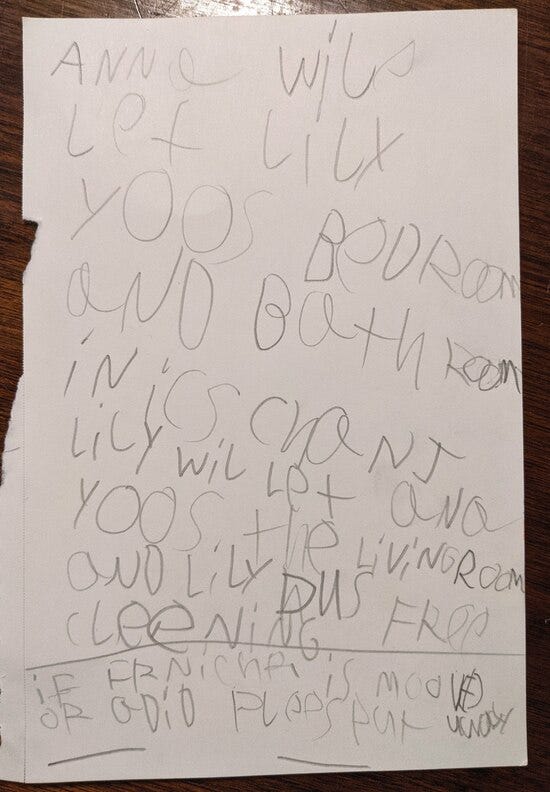 ANNa Wils
Let LiLy
YOOS BeDROOM
aND BathROOM
iN ics chaNJ
LiLy wil Let aNa
YOOS the LiviNGROOM
aND LiLy DUS
CLeeNiNG FRee
iF FRNicher is mooved
OR aDiD PLees Put